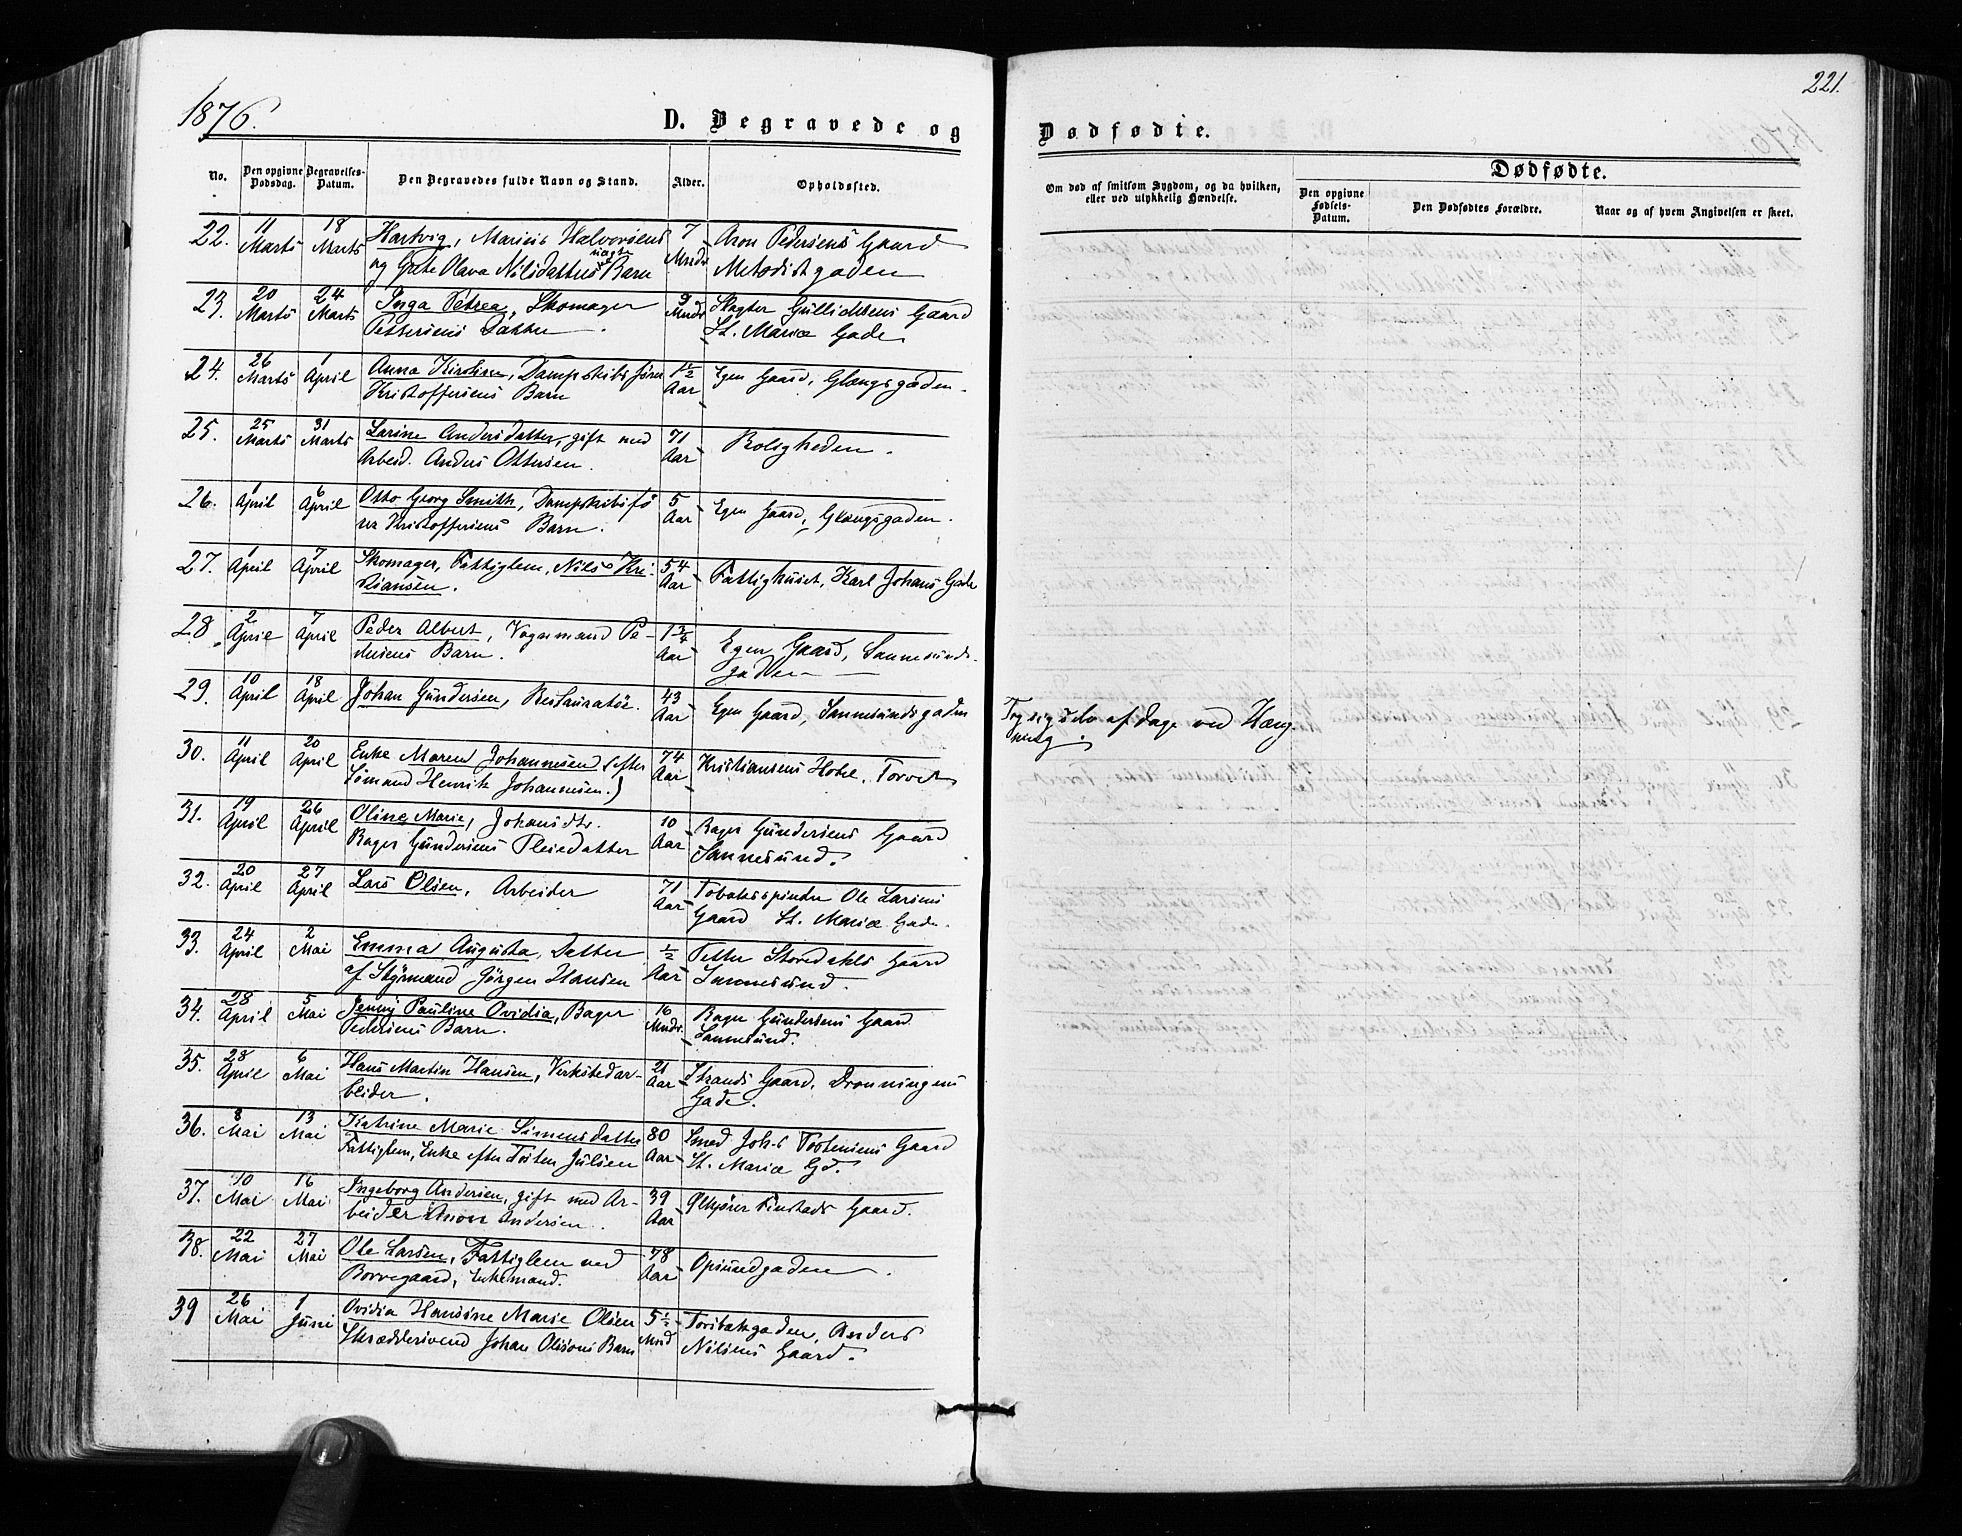 1876.
D. Begravede og
No.
Den opgivne Dødsdag.
Begravelses-Datum.
Den Begravedes fulde Navn og Stand.
Alder.
Opholdssted.
22. 11 Marts 18 Marts Hartvig, Marius Halvorsens 7 Mndr. Aron Pedersens Gaard
og Grete Olava Nilsdatters uægte Barn Metodistgaden
23. 20 Marts 24 Marts Inga Petrea, Skomager 9 Mndr. Slagter Gullichsens Gaard
Pettersens Datter. St. Mariæ Gade.
24. 26 Marts 1 April Anna Kirstine, Dampskibsfører 1 1/2 Aar Egen Gaard, Glængsgaden.
Kristoffersens Barn
25. 25 Marts 31 Marts Larine Andersdatter, gift med 71 Aar Roligheden.
Arbeid. Anders Ottersen.
26. 1 April 6 April Otto Georg Smith, Dampskibsfø 5 Aar Egen Gaard, Glængsgaden.
rer Kristoffersens Barn.
27. 1 April 7 April Skomager, Fattiglem, Nils Kri- 54 Aar Fattighuset, Karl Johans Gade
stiansen.
28. 2 April 7 April Peder Albert, Vognmand Pe- 1 3/4 Aar Egen Gaard, Sannesunds-
dersens Barn. gaden
29. 10 April 18 April Johan Gundersen, Restauratør. 43 Aar Egen Gaard, Sannesundsgaden
30. 11 April 20 April Enke Maren Johannesen (efter 74 Aar Kristiansens Hotel, Torvet
Sømand Henrik Johannesen.)
31. 19 April 26 April Oline Marie, Johansdtr. 10 Aar Bager Gundersens Gaard
Bager Gundersens Pleiedatter Sannesund.
32. 20 April 27 April Lars Olsen, Arbeider 71 Aar Tobaksspinder Ole Larsens
Gaard St. Mariæ Gade.
33. 24 April 2 Mai Emma Augusta, Datter 1/2 Aar Petter Stordahls Gaard
af Styrmand Jørgen Hansen Sannesund.
34. 28 April 5 Mai Jenny Pauline Ovidia, Bager 16 Mndr. Bager Gundersens Gaard
Pedersens Barn. Sannesund.
35. 28 April 6 Mai Hans Martin Hansen, Verkstedar- 21 Aar Strands Gaard, Dronningens
beider. Gade.
36. 8 Mai 13 Mai Katrine Marie Simensdatter 80 Aar Smed Johs Tostensens Gaard
Fattiglem, Enke efter Tosten Julsen St. Mariæ Gd.
37. 10 Mai 16 Mai Ingeborg Andersen, gift med Ar- 39 Aar Ølkjører Finstads Gaard.
beider Aron Andersen.
38. 22 Mai 27 Mai Ole Larsen, Fattiglem ved 78 Aar Opsundgaden.
Borregaard, Enkemand.
39 26 Mai 1 Juni Ovidia Hansine Marie Olsen 5 1/2 Mnd Torsbækgaden, Anders
Skræddersvend Johan Olsons Barn Nilsens Gaard.
221.
Dødfødte.
Om død af smitsom Sygdom, og da hvilken,
eller ved ulykkelig Hændelse.
Dødfødte.
Den opgivne Fødsels-Datum.
Den Dødfødtes Forældre.
Naar og af hvem Angivelsen er skeet.
Tog sig selv af dage ved Hæng-
ning.